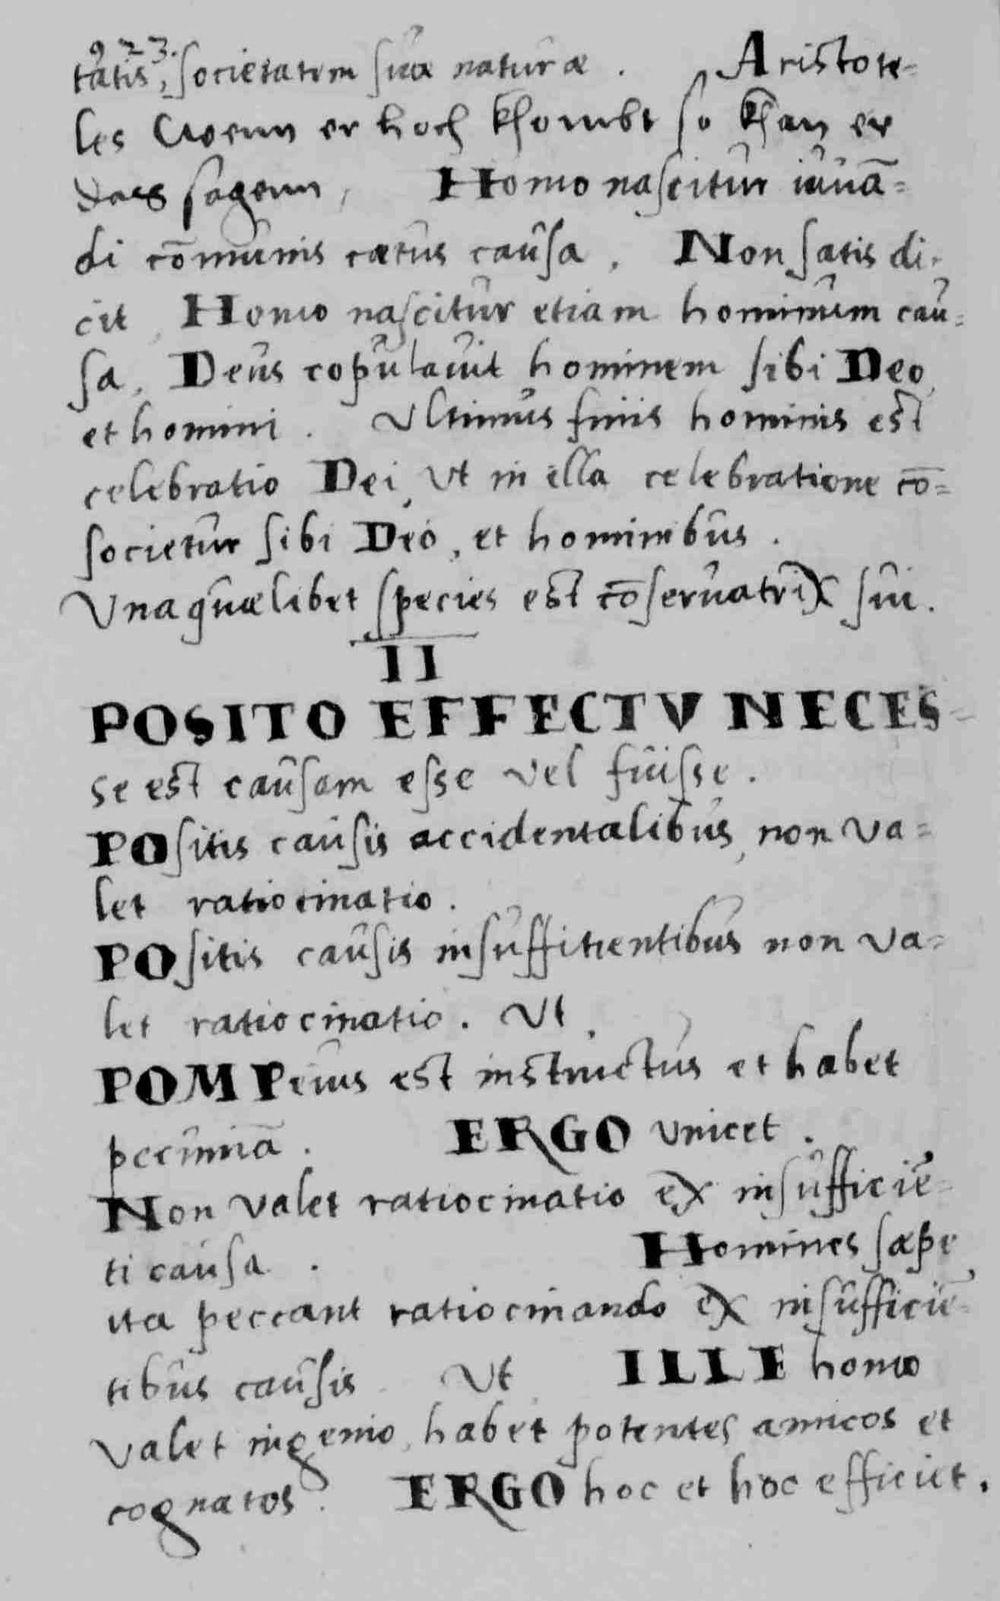 923.
tatis, societatem suæ naturæ . Aristote=
les Wenn er hoch khombt so khan er
das sagenn, Homo nascitur iuuā=
di cōmunis cætus causa . Non satis di-
cit Homo nascitur etiam hominum cau=
sa. Deus copulauit hominem sibi Deo,
et homini . Ultimus finis hominis est
celebratio Dei, Ut in illa celebratione cō=
societur sibi Deo, et hominibus .
Unaquælibet species est cōseruatrix sui.
II
POSITO EFFECTV NECES-
se est causam esse vel fuisse .
POsitis causis accidentalibus, non va=
let ratiocinatio .
POsitis causis insuffitientibus non va=
let ratiocinatio . Ut
POMPeius est instructus et habet
pecuniā . ERGO vincet .
Non valet ratiocinatio ex insufficiē=
ti causa . Homines sæpe
ita peccant ratiocinando ex insufficiē=
tibus causis Ut ILLE homo
valet ingenio, habet potentes amicos et
cognatos . ERGO hoc et hoc efficiet .